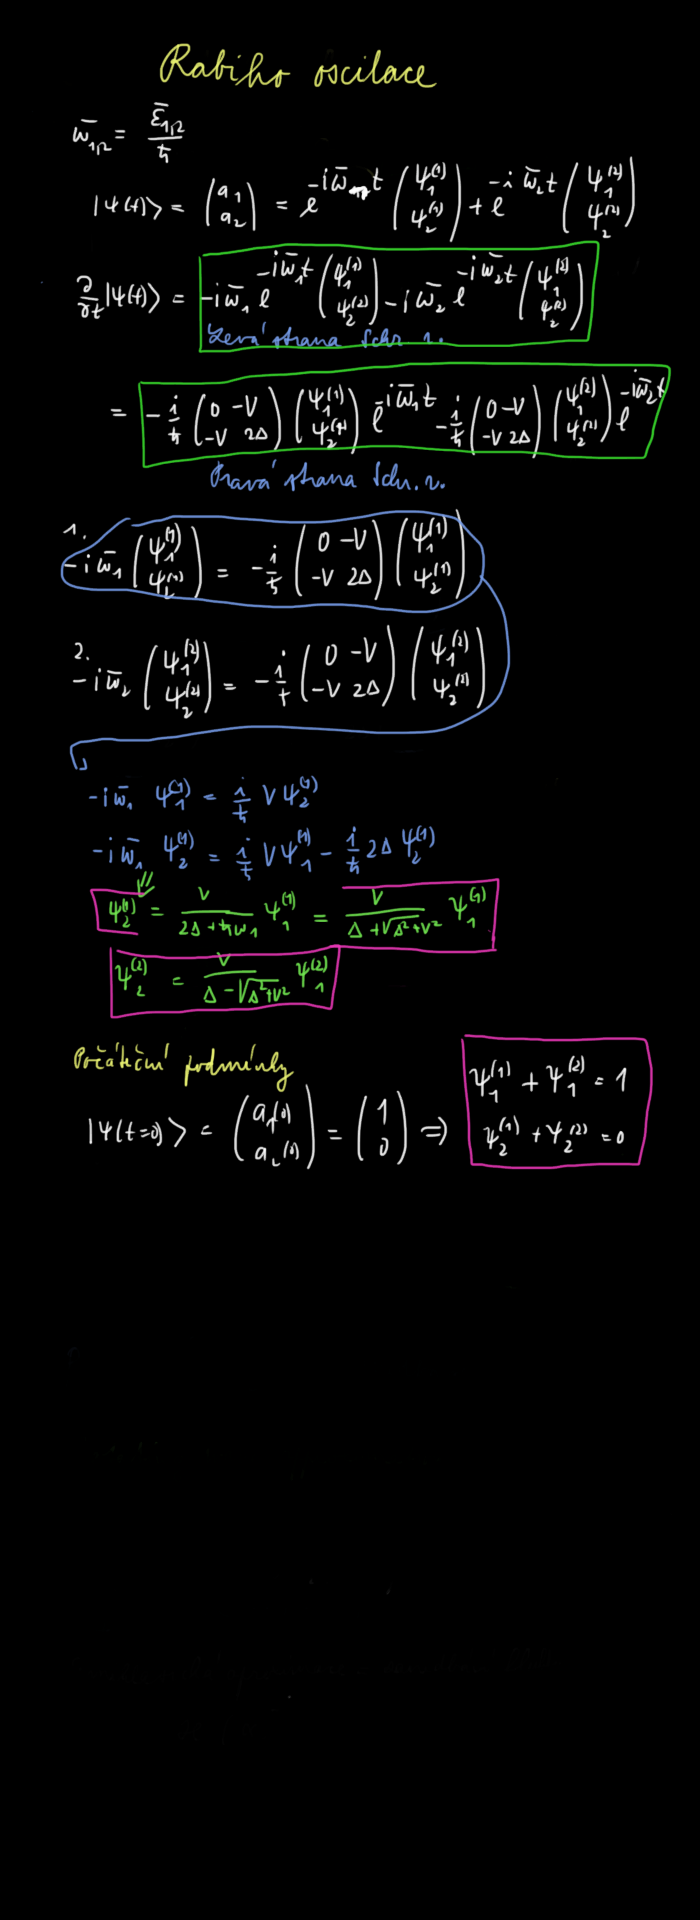 Rabiho oscilace
ω̄₁,₂ = ε̄₁,₂ / ħ
|Ψ(t)> = (a₁ a₂) = e^{-iω̄₁t} (ψ₁⁽¹⁾ ψ₂⁽¹⁾) + e^{-iω̄₂t} (ψ₁⁽²⁾ ψ₂⁽²⁾)
∂/∂t |Ψ(t)> = -iω̄₁ e^{-iω̄₁t} (ψ₁⁽¹⁾ ψ₂⁽²⁾) - iω̄₂ e^{-iω̄₂t} (ψ₁⁽²⁾ ψ₂⁽²⁾)
Levá strana Schr. r.
= -i/ħ (0 -V -V 2Δ) (ψ₁⁽¹⁾ ψ₂⁽¹⁾) e^{-iω̄₁t} - i/ħ (0 -V -V 2Δ) (ψ₁⁽²⁾ ψ₂⁽²⁾) e^{-iω̄₂t}
Pravá strana Schr. r.
1.
-iω̄₁ (ψ₁⁽¹⁾ ψ₂⁽¹⁾) = -i/ħ (0 -V -V 2Δ) (ψ₁⁽¹⁾ ψ₂⁽¹⁾)
2.
-iω̄₂ (ψ₁⁽²⁾ ψ₂⁽²⁾) = -i/ħ (0 -V -V 2Δ) (ψ₁⁽²⁾ ψ₂⁽²⁾)
-iω̄₁ ψ₁⁽¹⁾ = i/ħ Vψ₂⁽¹⁾
-iω̄₁ ψ₂⁽¹⁾ = i/ħ Vψ₁⁽¹⁾ - i/ħ 2Δ ψ₂⁽¹⁾
ψ₂⁽¹⁾ = V / (2Δ+ħω₁) ψ₁⁽¹⁾ = V / (Δ+√(Δ²+V²)) ψ₁⁽¹⁾
ψ₂⁽²⁾ = V / (Δ-√(Δ²+V²)) ψ₁⁽²⁾
Počáteční podmínky
|Ψ(t=0)> = (a₁(0) a₂(0)) = (1 0) ⇒
ψ₁⁽¹⁾ + ψ₁⁽²⁾ = 1
ψ₂⁽¹⁾ + ψ₂⁽²⁾ = 0